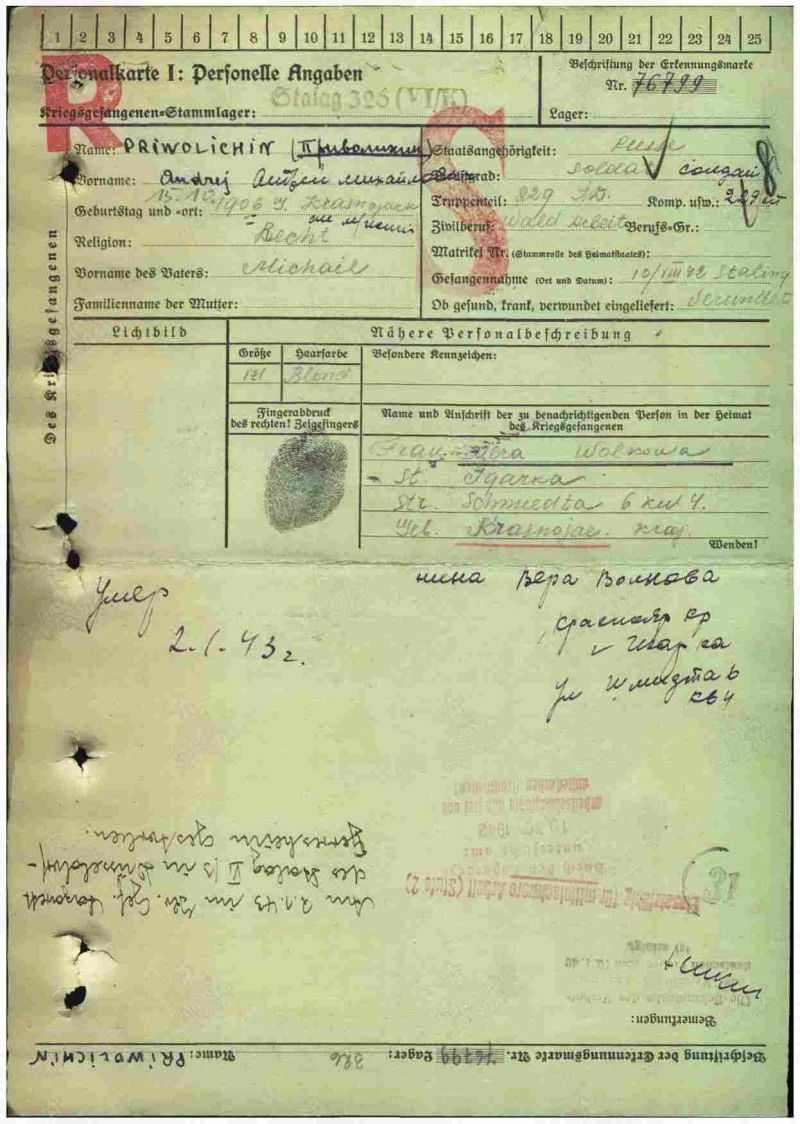 1 2 3 4 5 6 7 8 9 10 11 12 13 14 15 16 17 18 19 20 21 22 23 24 25
Personalkarte I: Personelle Angaben
Beschriftung der Erkennungsmarke
Nr. 76799
Kriegsgefangenen-Stammlager: Stalag 326 (VI/K)
Lager:
R
S
Des Kriegsgefangenen
Name: PRIWOLICHIN (Приволихин)
Staatsangehörigkeit:
Vorname: Andrej Андрей Михайлович
Dienstgrad: Soldat солдат
8
Geburtstag und -ort: 15.10. 1906 Krasnojarsk
Truppenteil: 229 I.D. Komp. usw.: 229
Zivilberuf: Wald Arbeit Berufs-Gr.:
Religion: Recht
Matrikel Nr. (Stammrolle des Heimatstaates):
Vorname des Vaters: Michail
Gefangennahme (Ort und Datum): 10/VIII 42 Staling
Familienname der Mutter:
Ob gesund, krank, verwundet eingeliefert:
Lichtbild
Nähere Personalbeschreibung
Größe Haarfarbe Besondere Kennzeichen:
171 Blond
Fingerabdruck
des rechten! Zeigefingers
Name und Anschrift der zu benachrichtigenden Person in der Heimat
des Kriegsgefangenen
Frau: Wera Wolkowa
St. Igarka
Str. Schmiedta 6 kw 4.
Geb. Krasnojar. Kraj.
Wenden!
Умер
2.1.43 г.
Вера Волкова
Краснояр кр
Игарка
ул Шмидта 6
кв 4
Am 2.1.43 im Kr. Gef. Lazarett
des Stalag VI/J in Düsseldorf-
Gerresheim gestorben.
Einsatzfähig für mittelschwere Arbeit (Stufe 2)
Bemerkungen:
Beschriftung der Erkennungsmarke Nr. 76799 Lager: 326 Name: PRIWOLICHIN